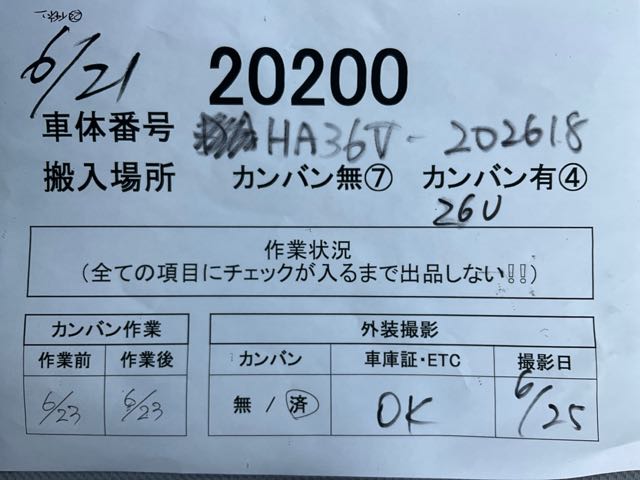 6/21
20200
車体番号 HA36V-202618
搬入場所 カンバン無⑦ カンバン有④
26U
作業状況
(全ての項目にチェックが入るまで出品しない!!)
カンバン作業 外装撮影
作業前 作業後 カンバン 車庫証・ETC 撮影日
6/23 6/23 無 / 済 OK 6/25